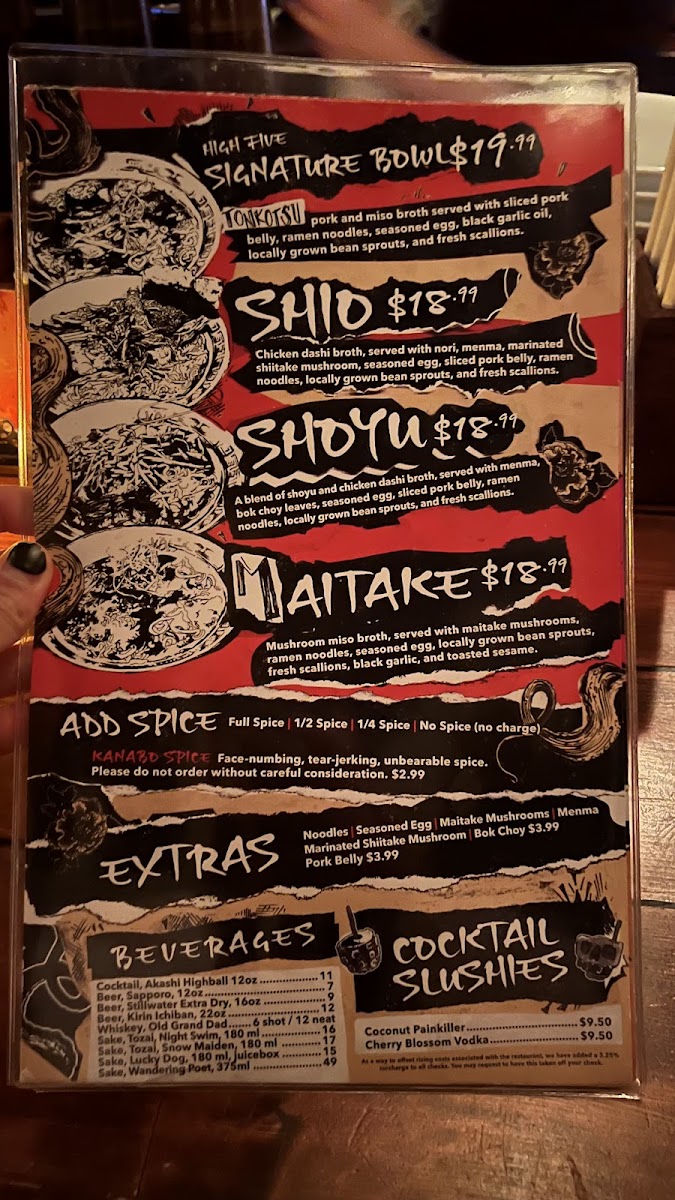 HIGH FIVE
SIGNATURE BOWL $19.99
TONKOTSU pork and miso broth served with sliced pork
belly, ramen noodles, seasoned egg, black garlic oil,
locally grown bean sprouts, and fresh scallions.
SHIO $18.99
Chicken dashi broth, served with nori, menma, marinated
shiitake mushroom, seasoned egg, sliced pork belly, ramen
noodles, locally grown bean sprouts, and fresh scallions.
SHOYU $18.99
A blend of shoyu and chicken dashi broth, served with menma,
bok choy leaves, seasoned egg, sliced pork belly, ramen
noodles, locally grown bean sprouts, and fresh scallions.
MAITAKE $18.99
Mushroom miso broth, served with maitake mushrooms,
ramen noodles, seasoned egg, locally grown bean sprouts,
fresh scallions, black garlic, and toasted sesame.
ADD SPICE Full Spice | 1/2 Spice | 1/4 Spice | No Spice (no charge)
KANABO SPICE Face-numbing, tear-jerking, unbearable spice.
Please do not order without careful consideration. $2.99
EXTRAS
Noodles | Seasoned Egg | Maitake Mushrooms | Menma
Marinated Shiitake Mushroom | Bok Choy $3.99
Pork Belly $3.99
BEVERAGES
Cocktail, Akashi Highball 12oz ................ 11
Beer, Sapporo, 12oz................................ 7
Beer, Stillwater Extra Dry, 16oz ................ 9
Beer, Kirin Ichiban, 22oz ......................... 12
Whiskey, Old Grand Dad....... 6 shot / 12 neat
Sake, Tozai, Night Swim, 180 ml ................ 16
Sake, Tozai, Snow Maiden, 180 ml ............. 17
Sake, Lucky Dog, 180 ml, Juicebox ............ 15
Sake, Wandering Poet, 375ml .................... 49
COCKTAIL
SLUSHIES
Coconut Painkiller............................ $9.50
Cherry Blossom Vodka....................... $9.50
As a way to offset rising costs associated with the restaurant, we have added a 3.25%
surcharge to all checks. You may request to have this taken off your check.